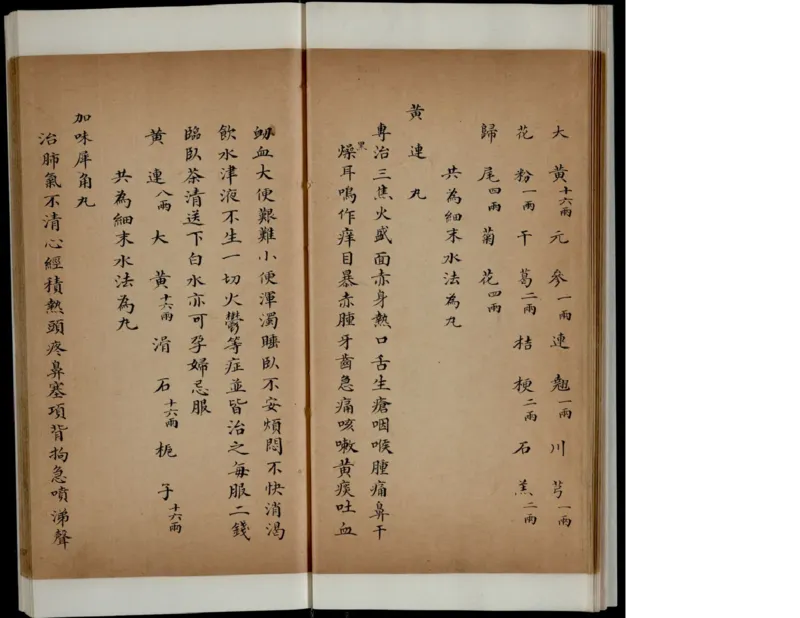 大黄十六兩元參一兩連翹一兩川芎一兩
花粉一兩干葛二兩桔梗二兩石羔二兩
歸尾四兩菊花四兩
共為細末水法為丸
黄連丸
專治三焦火盛面赤身熱口舌生瘡咽喉腫痛鼻干
燥耳鳴作痒目暴赤腫牙齒急痛咳嗽黄痰吐血
衂血大便艱難小便渾濁睡臥不安煩悶不快消渴
飲水津液不生一切火鬱等症並皆治之每服二錢
臨臥茶清送下白水亦可孕婦忌服
黄連八兩大黄十六兩滑石十六兩栀子十六兩
共為細末水法為丸
加味犀角丸
治肺氣不清心經積熱頭疼鼻塞項背拘急噴涕聲